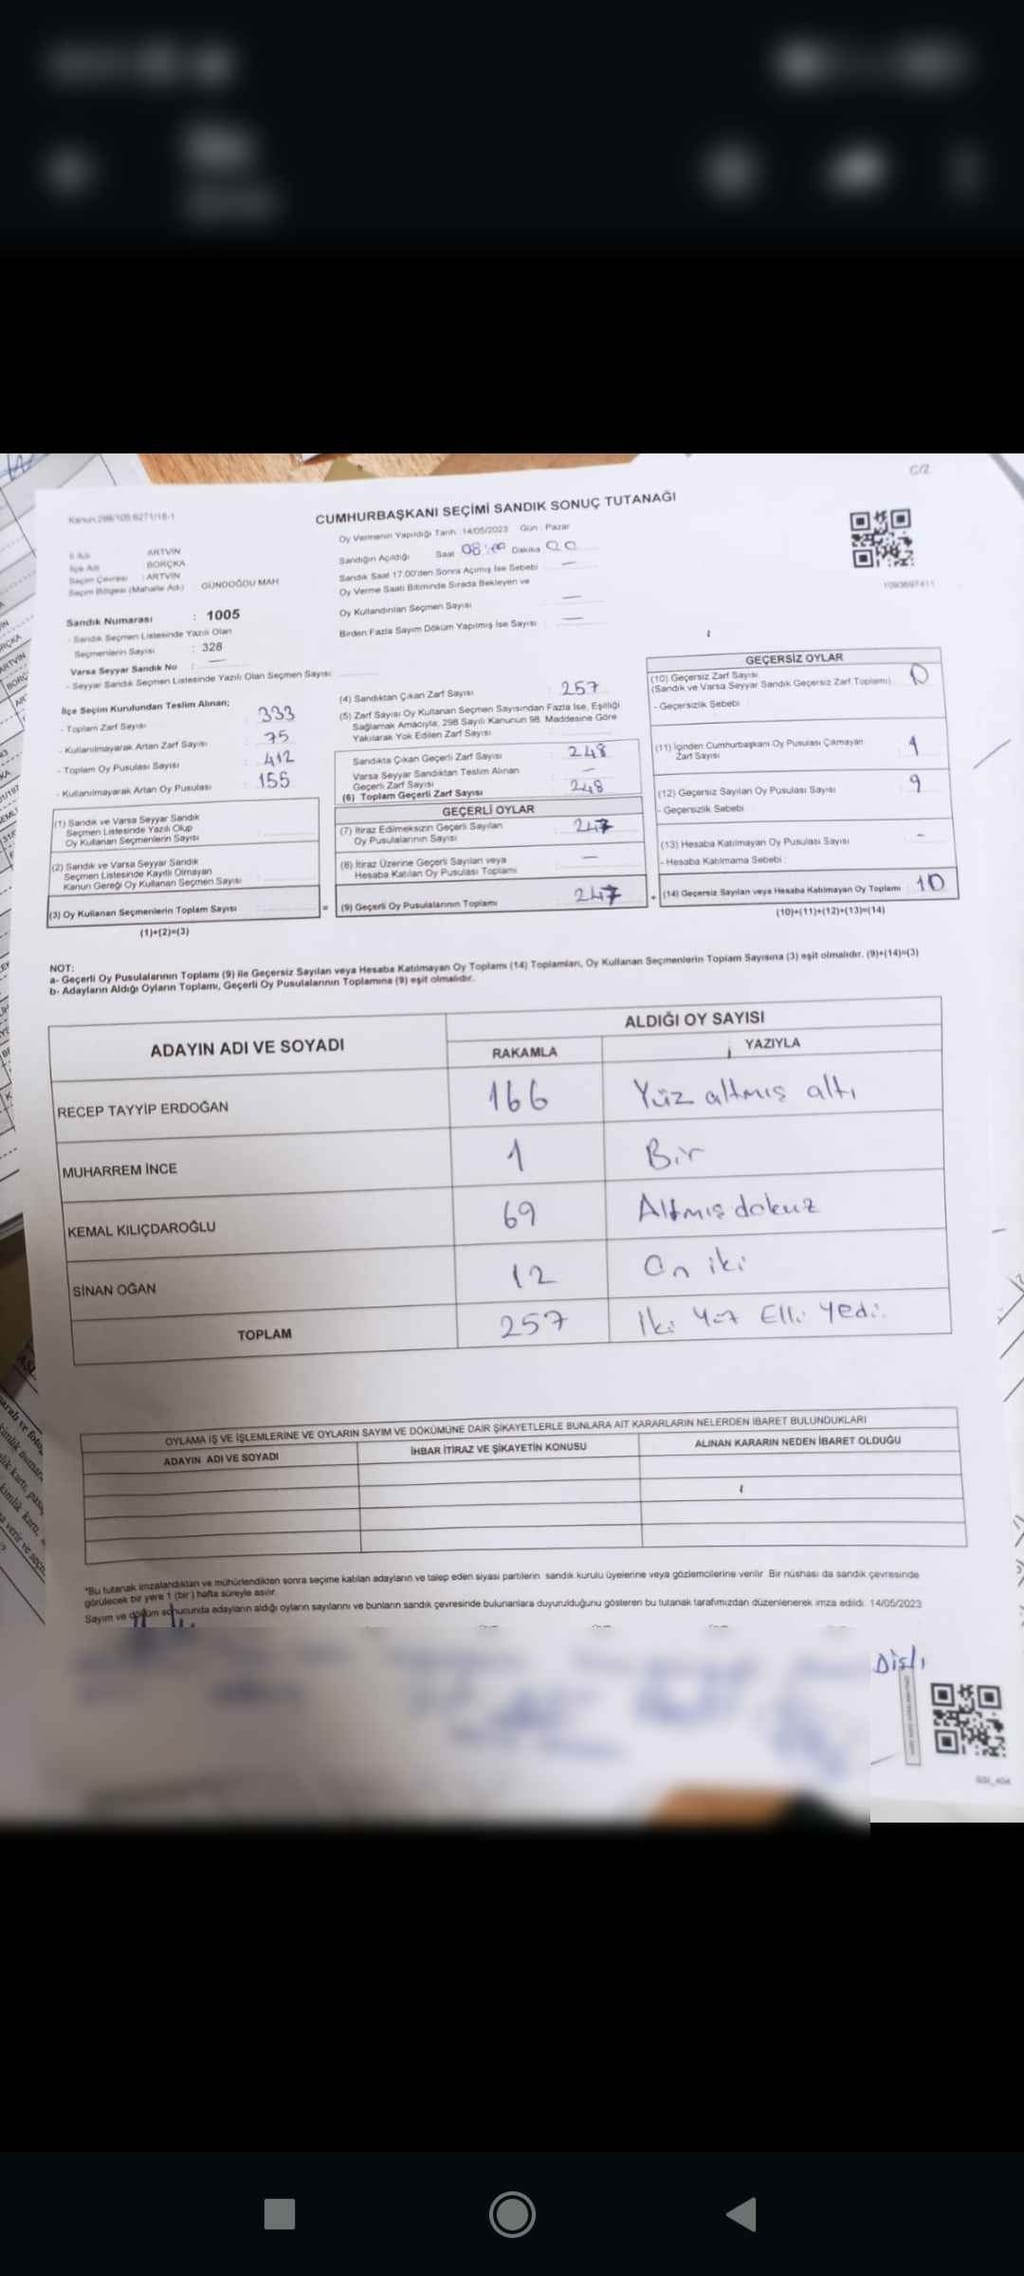 C/2
CUMHURBAŞKANI SEÇİMİ SANDIK SONUÇ TUTANAĞI
Oy Vermenin Yapıldığı Tarih : 14/05/2023 Gün : Pazar
İl Adı : ARTVİN
İlçe Adı : BORÇKA
Seçim Çevresi : ARTVİN
Seçim Bölgesi (Mahalle Adı) : GÜNDOĞDU MAH
Sandığın Açıldığı Saat 08:00 Dakika 00
Sandık Saat 17:00'den Sonra Açımış İse Sebebi —
Oy Verme Saati Bitiminde Sırada Bekleyen ve
Oy Kullandırılan Seçmen Sayısı —
Birden Fazla Sayım Döküm Yapılmış İse Sayısı —
Sandık Numarası : 1005
- Sandık Seçmen Listesinde Yazılı Olan
Seçmenlerin Sayısı : 328
Varsa Seyyar Sandık No : —
- Seyyar Sandık Seçmen Listesinde Yazılı Olan Seçmen Sayısı:
İlçe Seçim Kurulundan Teslim Alınan;
- Toplam Zarf Sayısı : 333
- Kullanılmayarak Artan Zarf Sayısı : 75
- Toplam Oy Pusulası Sayısı : 412
- Kullanılmayarak Artan Oy Pusulası : 155
(1) Sandık ve Varsa Seyyar Sandık
Seçmen Listesinde Yazılı Olup
Oy Kullanan Seçmenlerin Sayısı
(2) Sandık ve Varsa Seyyar Sandık
Seçmen Listesinde Kayıtlı Olmayan
Kanun Gereği Oy Kullanan Seçmen Sayısı
(3) Oy Kullanan Seçmenlerin Toplam Sayısı
(1)+(2)=(3)
(4) Sandıktan Çıkan Zarf Sayısı : 257
(5) Zarf Sayısı Oy Kullanan Seçmen Sayısından Fazla İse, Eşitliği
Sağlamak Amacıyla, 298 Sayılı Kanunun 98. Maddesine Göre
Yakılarak Yok Edilen Zarf Sayısı
Sandıkta Çıkan Geçerli Zarf Sayısı : 248
Varsa Seyyar Sandıktan Teslim Alınan
Geçerli Zarf Sayısı —
(6) Toplam Geçerli Zarf Sayısı 248
GEÇERLİ OYLAR
(7) İtiraz Edilmeksizin Geçerli Sayılan
Oy Pusulalarının Sayısı 247
(8) İtiraz Üzerine Geçerli Sayılan veya
Hesaba Katılan Oy Pusulası Toplamı —
= (9) Geçerli Oy Pusulalarının Toplamı 247
GEÇERSİZ OYLAR
(10) Geçersiz Zarf Sayısı
(Sandık ve Varsa Seyyar Sandık Geçersiz Zarf Toplamı) 0
- Geçersizlik Sebebi
(11) İçinden Cumhurbaşkanı Oy Pusulası Çıkmayan
Zarf Sayısı 1
(12) Geçersiz Sayılan Oy Pusulası Sayısı 9
- Geçersizlik Sebebi
(13) Hesaba Katılmayan Oy Pusulası Sayısı -
- Hesaba Katılmama Sebebi :
+ (14) Geçersiz Sayılan veya Hesaba Katılmayan Oy Toplamı 10
(10)+(11)+(12)+(13)=(14)
NOT:
a- Geçerli Oy Pusulalarının Toplamı (9) ile Geçersiz Sayılan veya Hesaba Katılmayan Oy Toplamı (14) Toplamları, Oy Kullanan Seçmenlerin Toplam Sayısına (3) eşit olmalıdır. (9)+(14)=(3)
b- Adayların Aldığı Oyların Toplamı, Geçerli Oy Pusulalarının Toplamına (9) eşit olmalıdır.
ADAYIN ADI VE SOYADI
ALDIĞI OY SAYISI
RAKAMLA YAZIYLA
RECEP TAYYİP ERDOĞAN 166 Yüz altmış altı
MUHARREM İNCE 1 Bir
KEMAL KILIÇDAROĞLU 69 Altmış dokuz
SİNAN OĞAN 12 On iki
TOPLAM 257 İki Yüz Elli Yedi
OYLAMA İŞ VE İŞLEMLERİNE VE OYLARIN SAYIM VE DÖKÜMÜNE DAİR ŞİKAYETLERLE BUNLARA AİT KARARLARIN NELERDEN İBARET BULUNDUKLARI
ADAYIN ADI VE SOYADI İHBAR İTİRAZ VE ŞİKAYETİN KONUSU ALINAN KARARIN NEDEN İBARET OLDUĞU
*Bu tutanak imzalandıktan ve mühürlendikten sonra seçime katılan adayların ve talep eden siyasi partilerin sandık kurulu üyelerine veya gözlemcilerine verilir. Bir nüshası da sandık çevresinde
görülecek bir yere 1 (bir) hafta süreyle asılır.
Sayım ve döküm sonucunda adayların aldığı oyların sayılarını ve bunların sandık çevresinde bulunanlara duyurulduğunu gösteren bu tutanak tarafımızdan düzenlenerek imza edildi. 14/05/2023
Dişli